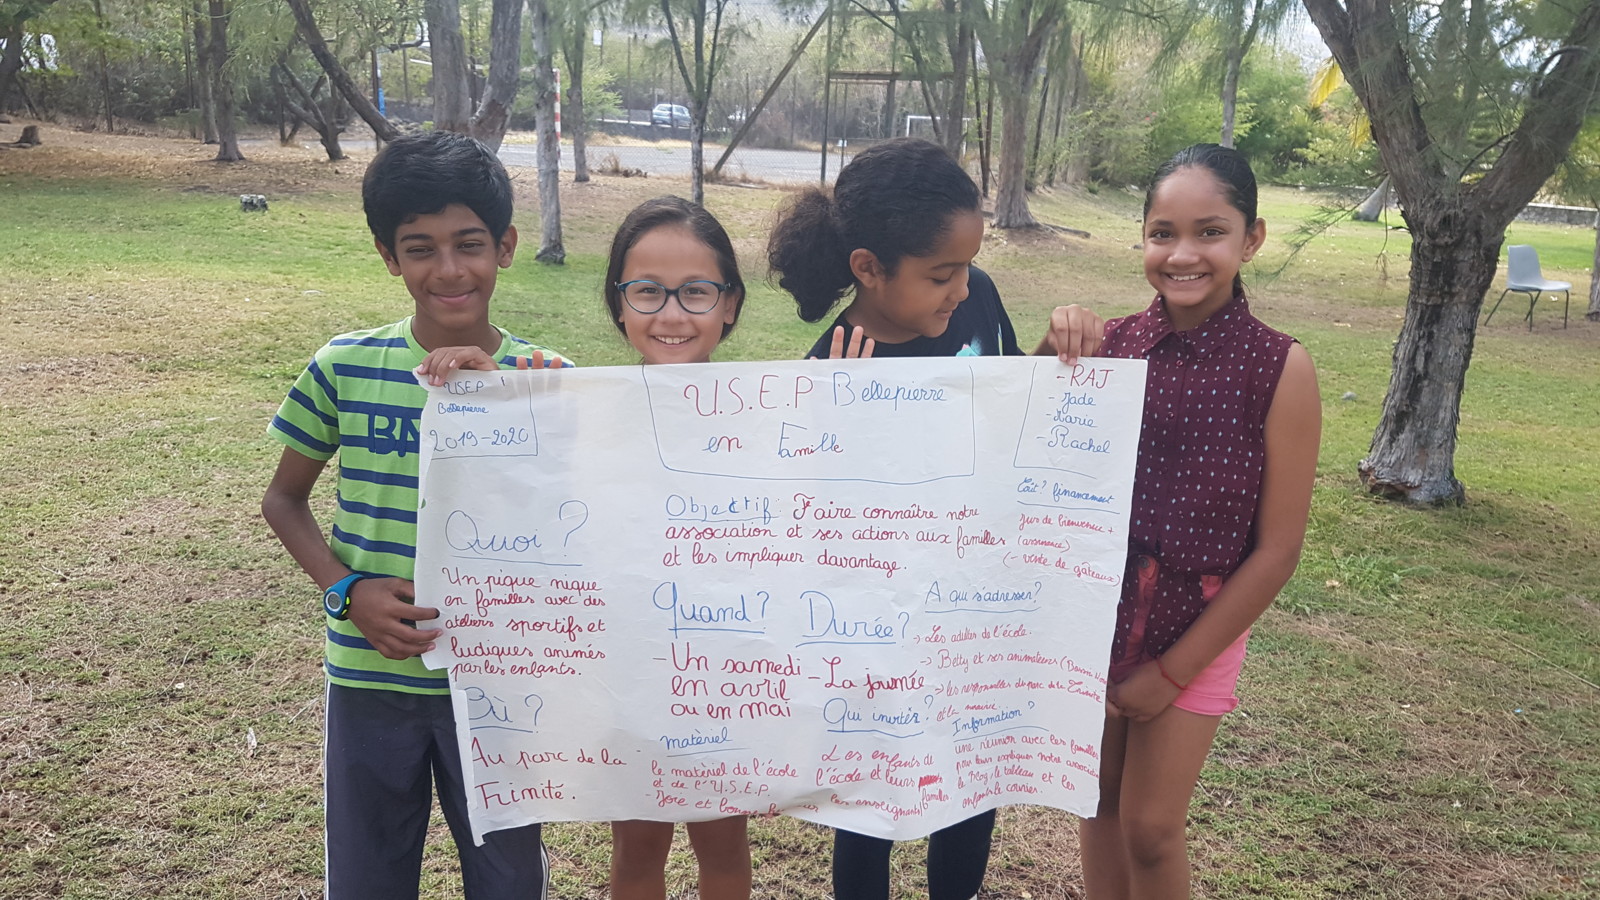 USEP
Bellepierre
2019-2020
U.S.E.P Bellepierre
en Famille
- RAJ
- Jade
- Marie
- Rachel
Quoi?
Un pique nique
en familles avec des
ateliers sportifs et
ludiques animés
par les enfants.
Où?
Au parc de la
Trinité.
Objectif: Faire connaître notre
association et ses actions aux familles
et les impliquer davantage.
Quand?
- Un samedi
en avril
ou en mai
matèriel
le matèriel de l'école
et de l'U.S.E.P.
- Joie et bonne
Durée?
- La journée
Qui inviter?
Les enfants de
l'école et leurs
familles.
les enseignants
Coût? financement
Jus de bienvenue +
(- vente de gâteaux)
A qui s'adresser?
-> Les adultes de l'école.
-> Betty et ses animateurs
-> les responsables du parc de la Trinité
et la mairie.
Information?
une réunion avec les familles
pour leurs expliquer notre association
le blog, le tableau et les
enfants le courrier.
BA